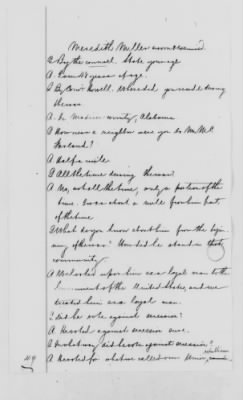 Meredith Miller sworn & examined.
Q By the counsel. State your age
A I am 48 years of age.
Q By Com. Howell. Where did you reside during
the war
A In Madison county, Alabama
Q How near a neighbor were you to Mr. Mc
Farland?
A Half a mile
Q All the time during the war?
A No, not all the time, only a portion of the
time. I was about a mile from him part
of the time
Q What do you know about him from the begin-
ning of the war? How did he stand in that
community
A We looked upon him as a loyal man to the
Government of the United States, and we
treated him as a loyal man.
Q Did he vote against secession?
A He voted against secession once.
Q In what way did he vote against secession?
A He voted for what we called our Union